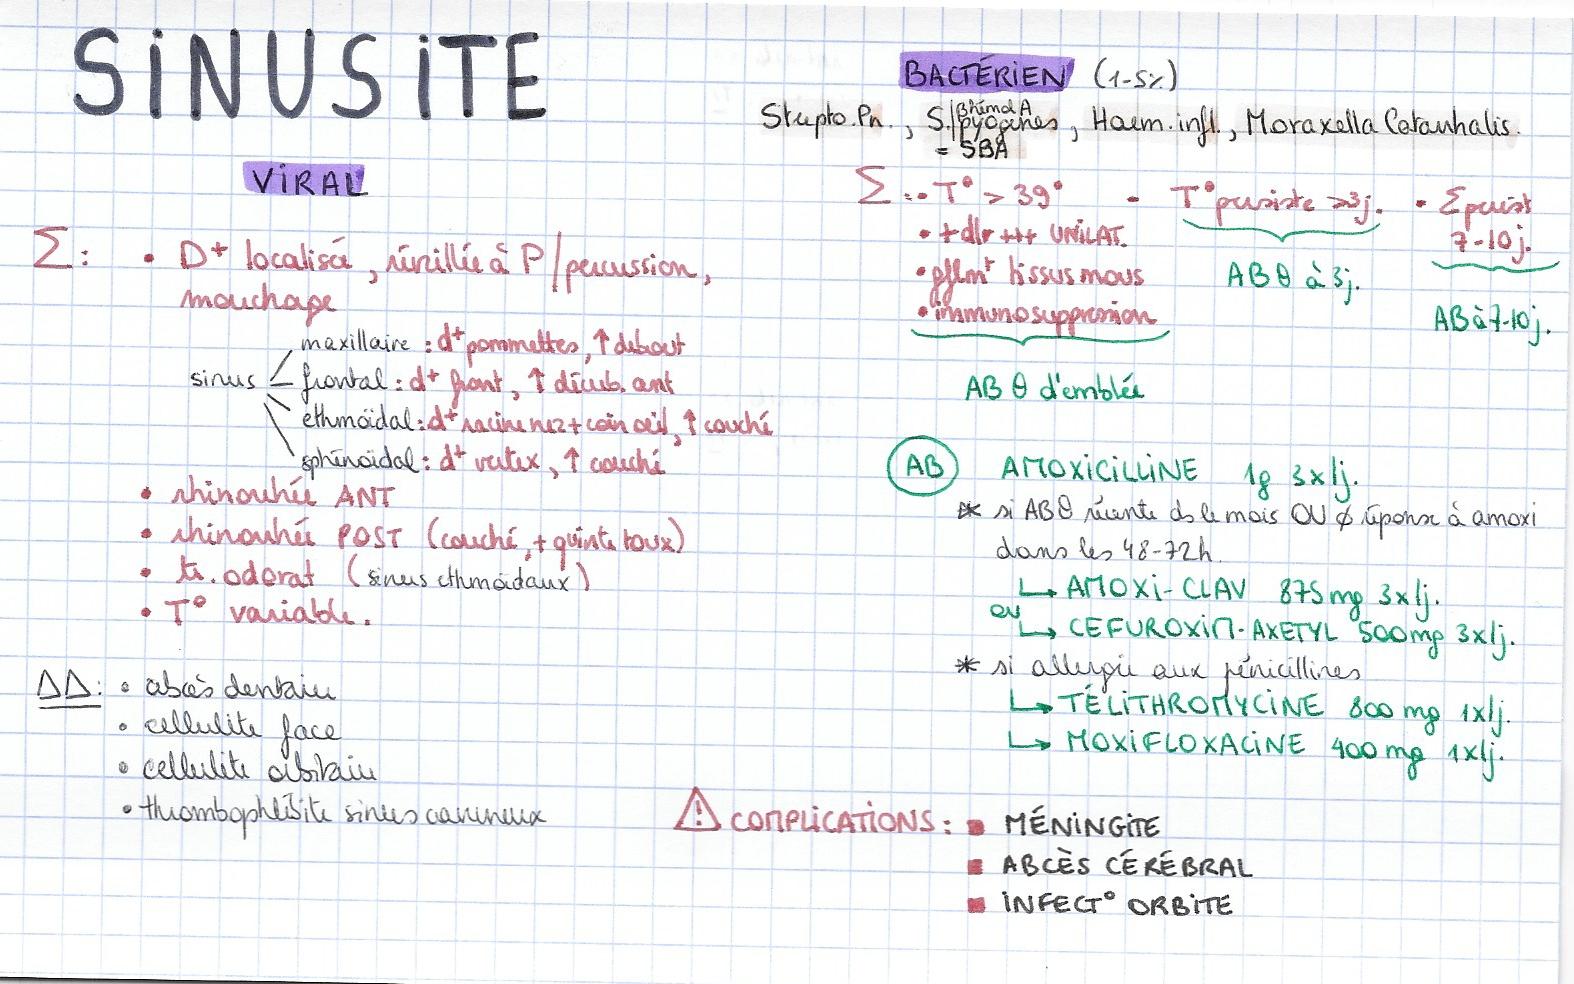 SINUSITE
VIRAL
Σ: • D+ localisée, réveillée à P/percussion,
mouchage
sinus
maxillaire : d+ pommettes, ↑ debout
frontal : d+ front, ↑ décub. ant
ethmoïdal : d+ racine nez + coin oeil, ↑ couché
sphénoïdal : d+ vertex, ↑ couché
• rhinorrhée ANT
• rhinorrhée POST (couché, + quinte toux)
• tr. odorat (sinus ethmoïdaux)
• T° variable.
ΔΔ: • abcès dentaire
• cellulite face
• cellulite orbitaire
• thrombophlébite sinus caverneux
BACTÉRIEN (1-5%)
Strepto. Pn., S. βhémol A pyogènes, Haem. infl., Moraxella Catarrhalis.
= SBA
Σ: • T° > 39°
• + dlr +++ UNILAT.
• gflmt tissus mous
• immunosuppression
AB θ d'emblée
• T° persiste >3j.
AB θ à 3j.
• Σ persist
7-10j.
AB à 7-10j.
AB AMOXICILLINE 1g 3x/j.
* si ABθ récente ds le mois OU ∅ réponse à amoxi
dans les 48-72h
↳ AMOXI-CLAV 875mg 3x/j.
ou
↳ CEFUROXIM-AXETYL 500mg 3x/j.
* si allergie aux pénicillines
↳ TÉLITHROMYCINE 800 mg 1x/j.
↳ MOXIFLOXACINE 400 mg 1x/j.
⚠ COMPLICATIONS : ▪ MÉNINGITE
▪ ABCÈS CÉRÉBRAL
▪ INFECT° ORBITE